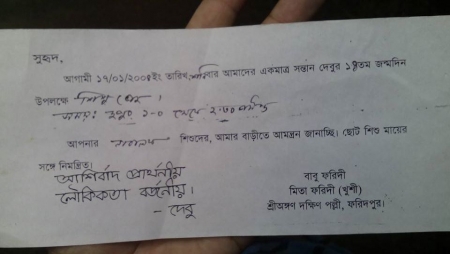 সুহৃদ,
আগামী ১৭/০১/২০০৫ইং তারিখ, শনিবার আমাদের একমাত্র সন্তান দেবুর ১ম জন্মদিন
উপলক্ষে শিশু মেলা।
সময়: দুপুর ১-০ থেকে ২-৩০
আপনার শিশুদের, আমার বাড়ীতে আমন্ত্রন জানাচ্ছি। ছোট শিশু মায়ের
সঙ্গে নিমন্ত্রিত।
আশির্বাদ প্রার্থনীয়
লৌকিকতা বর্জনীয়।
- দেবু
বাবু ফরিদী
মিতা ফরিদী (খুশী)
শ্রীঅঙ্গণ দক্ষিণ পল্লী, ফরিদপুর।